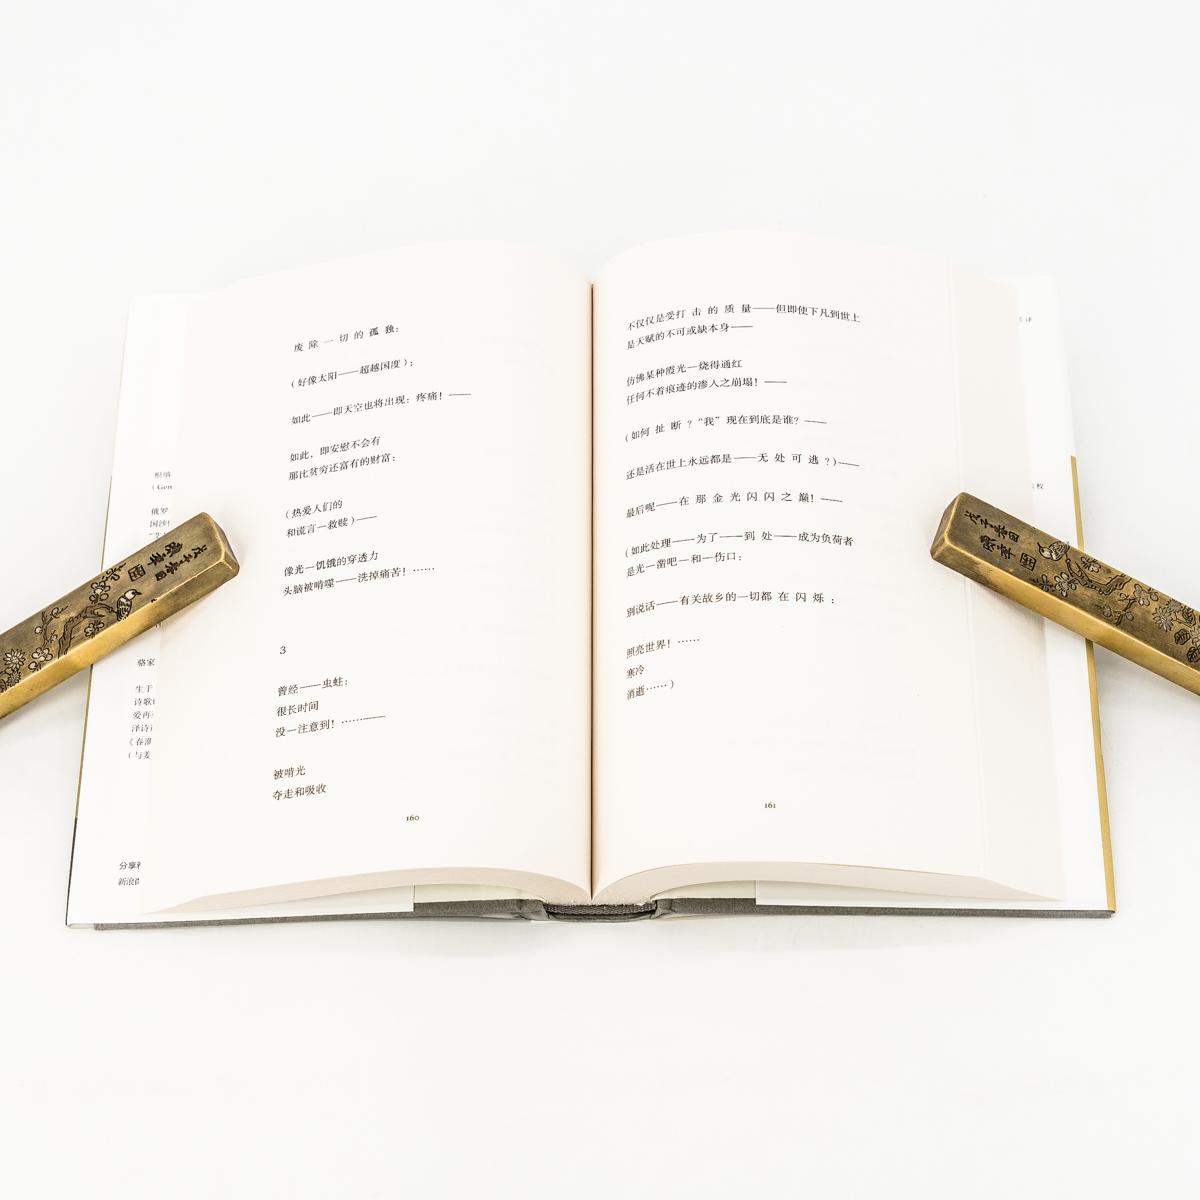 废 除 一 切 的 孤 独：
（好像太阳——超越国度）；
如此——即天空也将出现：疼痛！——
如此，即安慰不会有
那比贫穷还富有的财富：
（热爱人们的
和谎言—救赎）——
像光—饥饿的穿透力
头脑被啃噬——洗掉痛苦！……
3
曾经——虫蛀：
很长时间
没—注意到！……——
被啃光
夺走和吸收
160
不仅仅是受打 击 的 质 量——但即使下凡到世上
是天赋的不可或缺本身——
仿佛某种霞光—烧得通红
任何不着痕迹的渗入之崩塌！——
（如何 扯 断？“我”现在到底是谁？——
还是活在世上永远都是——无 处 可 逃？）——
最后呢——在 那 金 光 闪 闪 之 巅！——
（如此处理——为了——到 处——成为负荷者
是光—凿吧—和—伤口；
别说话——有关故乡的一切都 在 闪 烁：
照亮世界！……
寒冷
消逝……）
161
根纳
（Gen
俄罗
国沙
骆家
生于
诗歌
爱再
泽诗
《春
（与姜
分享
新浪
译
校
戊子春日